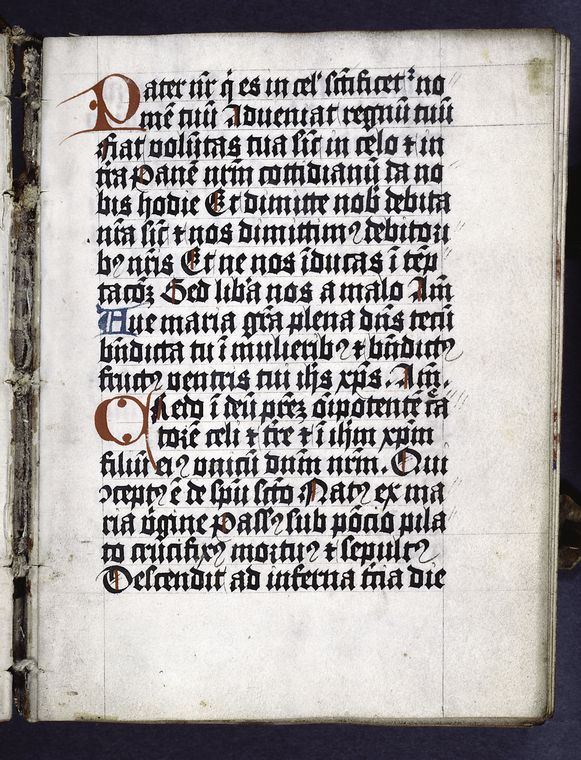 Pater nr̄ q̇ es in cel' sctīficet᷑ no
mē tuū Adveniat regnū tuū
Fiat volūtas tua sic̄ in celo ⁊ in
tr̄a Panē nrm̄ cottidianū da no
bis hodie Et dimitte nob̄ debita
nr̄a sic̄ ⁊ nos dimittimꝰ debitori
bꝰ nr̄is Et ne nos īducas ī tēp
tacōꝫ Sed lib̄a nos a malo Am̄
Aue maria gr̄a plena dn̄s tecū
bn̄dicta tu ī mulieribꝰ ⁊ bn̄dictꝰ
fructꝰ ventris tui ihs̄ xp̄s. Am̄.
Credo ī deū prēꝫ oīpotentē c̄a
torē celi ⁊ tr̄e ⁊ ī ihm̄ xpm̄
filiū eiꝰ vnicū dnm̄ nrm̄. Qui
ↄceptꝰ ē de sp̄u scto᷑ Natꝰ ex ma
ria v̄gine Passꝰ sub pōcio pila
to crucifixꝰ mortuꝰ ⁊ sepultꝰ
Descendit ad inferna t̄cia die